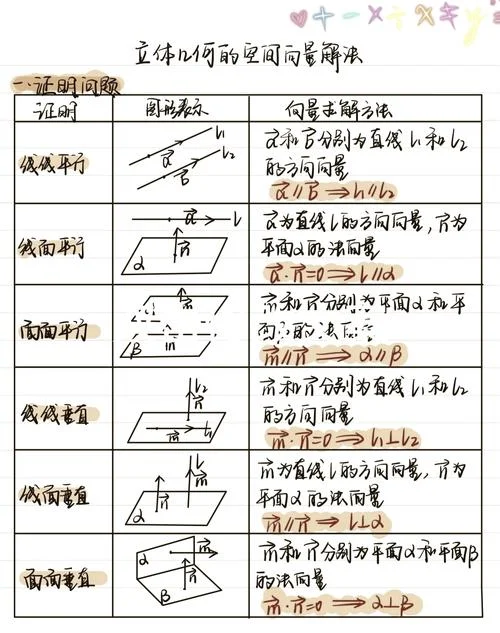 立体几何的空间向量解法
一.证明问题
证明 图形表示 向量求解方法
线线平行
a⃗ l₁
b⃗ l₂
a⃗和b⃗分别为直线l₁和l₂
的方向向量
a⃗∥b⃗⟹l₁∥l₂
线面平行
a⃗ l
n⃗
α
a⃗为直线l的方向向量,n⃗为
平面α的法向量
a⃗·n⃗=0⟹l∥α
面面平行
m⃗
β
m⃗和n⃗分别为平面α和平
面 的法向量
m⃗∥n⃗⟹α∥β
线线垂直
l₂
n⃗
m⃗ l₁
m⃗和n⃗分别为直线l₁和l₂
的方向向量
m⃗·n⃗=0⟹l₁⊥l₂
线面垂直
l
n⃗ m⃗
α
m⃗为直线l的方向向量,n⃗为
平面α的法向量
m⃗∥n⃗⟹l⊥α
面面垂直
α m⃗
n⃗
β
m⃗和n⃗分别为平面α和平面β
的法向量
m⃗·n⃗=0⟹α⊥β